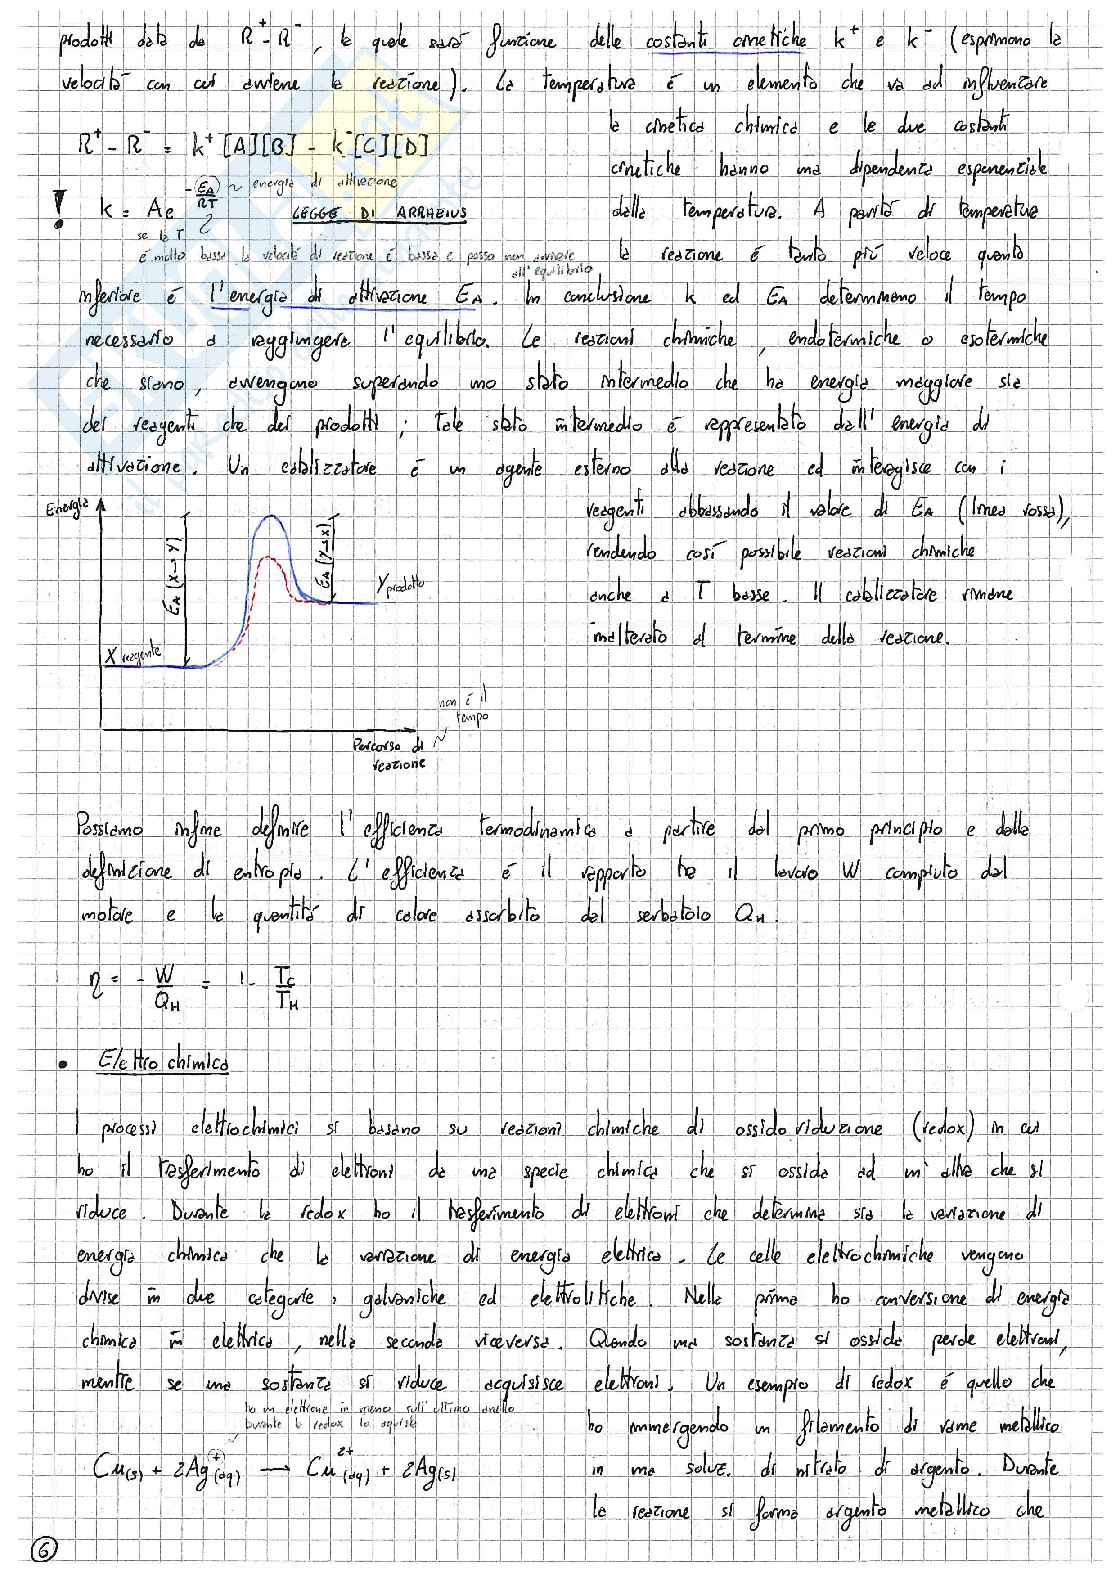 prodotti data da R⁺-R⁻, la quale sarà funzione delle costanti cinetiche k⁺ e k⁻ (esprimono la
velocità con cui avviene la reazione). La temperatura è un elemento che va ad influenzare
la cinetica chimica e le due costanti
R⁺ - R⁻ = k⁺[A][B] - k⁻[C][D]
cinetiche hanno una dipendenza esponenziale
! k = Ae^(-E_A/RT) ~ energia di attivazione
LEGGE DI ARRHEIUS
dalla temperatura. A parità di temperatura
se la T
è molto bassa la velocità di reazione è bassa e posso non arrivare
all'equilibrio
la reazione è tanto più veloce quanto
inferiore è l'energia di attivazione E_A. In conclusione k ed E_A determinano il tempo
necessario a raggiungere l'equilibrio. Le reazioni chimiche, endotermiche o esotermiche
che siano, avvengono superando uno stato intermedio che ha energia maggiore sia
dei reagenti che dei prodotti; tale stato intermedio è rappresentato dall'energia di
attivazione. Un catalizzatore è un agente esterno alla reazione ed interagisce con i
reagenti abbassando il valore di E_A (linea rossa),
rendendo così possibile reazioni chimiche
anche a T basse. Il catalizzatore rimane
inalterato al termine della reazione.
Energia
E_A (X→Y)
E_A (Y→X)
Y prodotto
X reagente
non è il
tempo
Percorso di
reazione
Possiamo infine definire l'efficienza termodinamica a partire dal primo principio e dalla
definizione di entropia. L'efficienza è il rapporto tra il lavoro W compiuto dal
motore e la quantità di calore assorbito dal serbatoio Q_H.
η = - W/Q_H = 1 - T_C/T_H
• Elettrochimica
I processi elettrochimici si basano su reazioni chimiche di ossidoriduzione (redox) in cui
ho il trasferimento di elettroni da una specie chimica che si ossida ad un'altra che si
riduce. Durante la redox ho il trasferimento di elettroni che determina sia la variazione di
energia chimica che la variazione di energia elettrica. Le celle elettrochimiche vengono
divise in due categorie, galvaniche ed elettrolitiche. Nella prima ho conversione di energia
chimica in elettrica, nella seconda viceversa. Quando una sostanza si ossida perde elettroni,
mentre se una sostanza si riduce acquisisce elettroni. Un esempio di redox è quello che
ho un elettrone in meno sull'ultimo anello
durante la redox lo acquista
ho immergendo un filamento di rame metallico
Cu(s) + 2Ag⁺(aq) → Cu²⁺(aq) + 2Ag(s)
in una soluz. di nitrato di argento. Durante
la reazione si forma argento metallico che
6